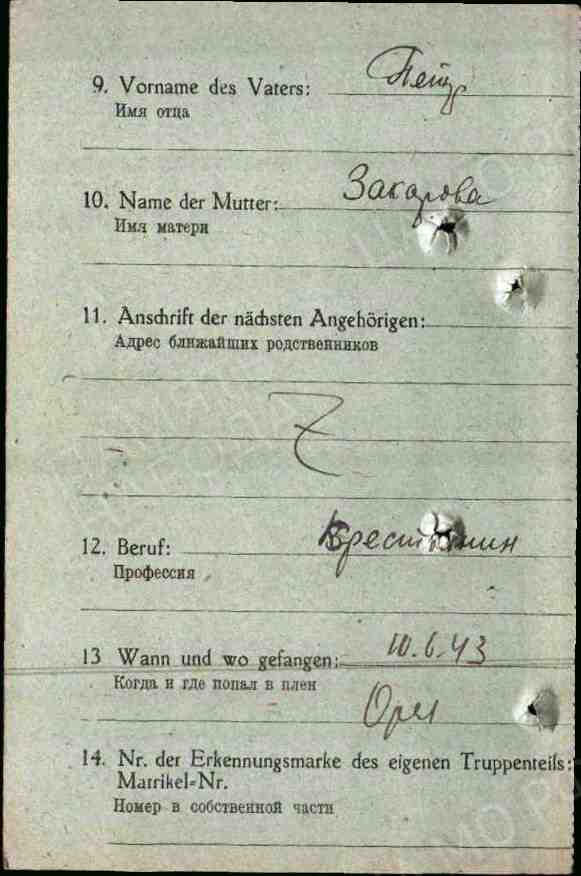 9. Vorname des Vaters: Петр
Имя отца
10. Name der Mutter: Захарова
Имя матери
11. Anschrift der nächsten Angehörigen:
Адрес ближайших родственников
12. Beruf: Крестьянин
Профессия
13 Wann und wo gefangen: 10.6.43
Когда и где попал в плен
Орел
14. Nr. der Erkennungsmarke des eigenen Truppenteils:
Matrikel-Nr.
Номер в собственной части